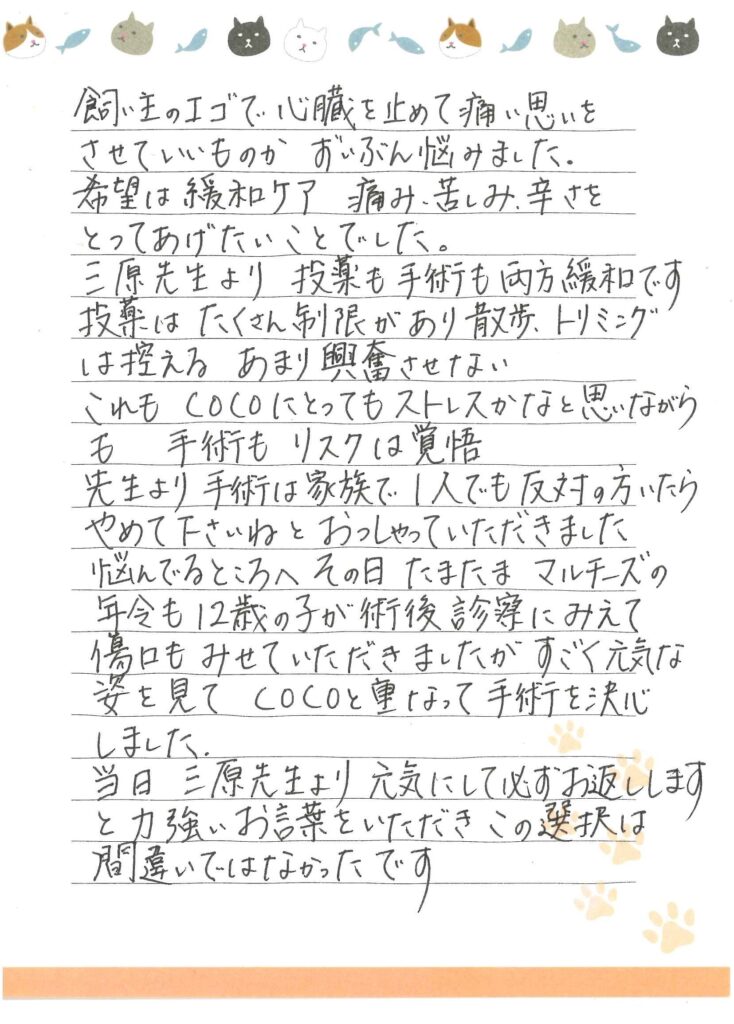 飼い主のエゴで 心臓を止めて痛い思いを
させていいものか ずいぶん悩みました。
希望は緩和ケア 痛み、苦しみ、辛さを
とってあげたいことでした。
三原先生より 投薬も手術も両方緩和です
投薬は たくさん制限があり散歩、トリミング
は控える あまり興奮させない
これも COCOにとってもストレスかなと思いながら
も 手術も リスクは覚悟
先生より 手術は家族で 1人でも反対の方いたら
やめて下さいねと おっしゃっていただきました
悩んでるところへ その日 たまたま マルチーズの
年令も 12歳の子が術後診察にみえて
傷口も みせていただきましたが すごく元気な
姿を見て COCOと重なって手術を決心
しました.
当日 三原先生より 元気にして必ずお返しします
と力強いお言葉をいただき この選択は
間違いではなかったです